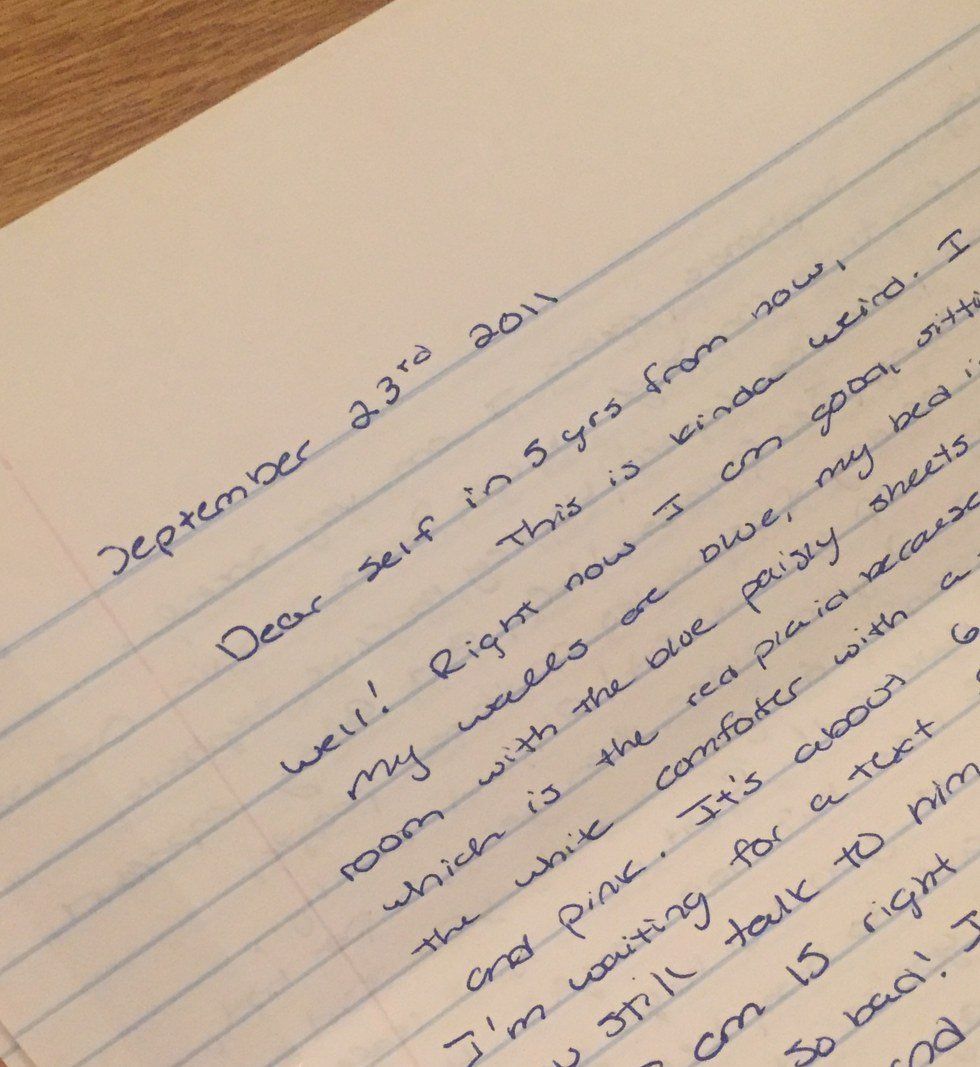 September 23rd 2011
Dear self in 5 yrs from now,
This is kinda weird. I
well! Right now I am good, sitti
My walls are blue, my bed i
room with the blue paisly sheets
which is the red plaid because
the white comforter with a
and pink. It's about 6
I'm waiting for a text
still talk to him
am 15 right
so bad! I
and